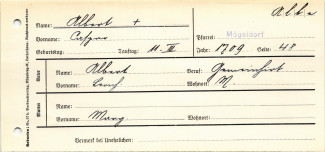 Albe
Name: Albert +
Pfarrei: Mögeldorf
Vorname: Caspar
Geburtstag: Tauftag: 11. IV. Jahr: 1709 Seite: 48
Vater
Name: Albert Beruf: Gemeinhirt
Vorname: Wohnort: M.
Mutter
Name:
Vorname: Marg Wohnort:
Vermerk bei Unehelichen: